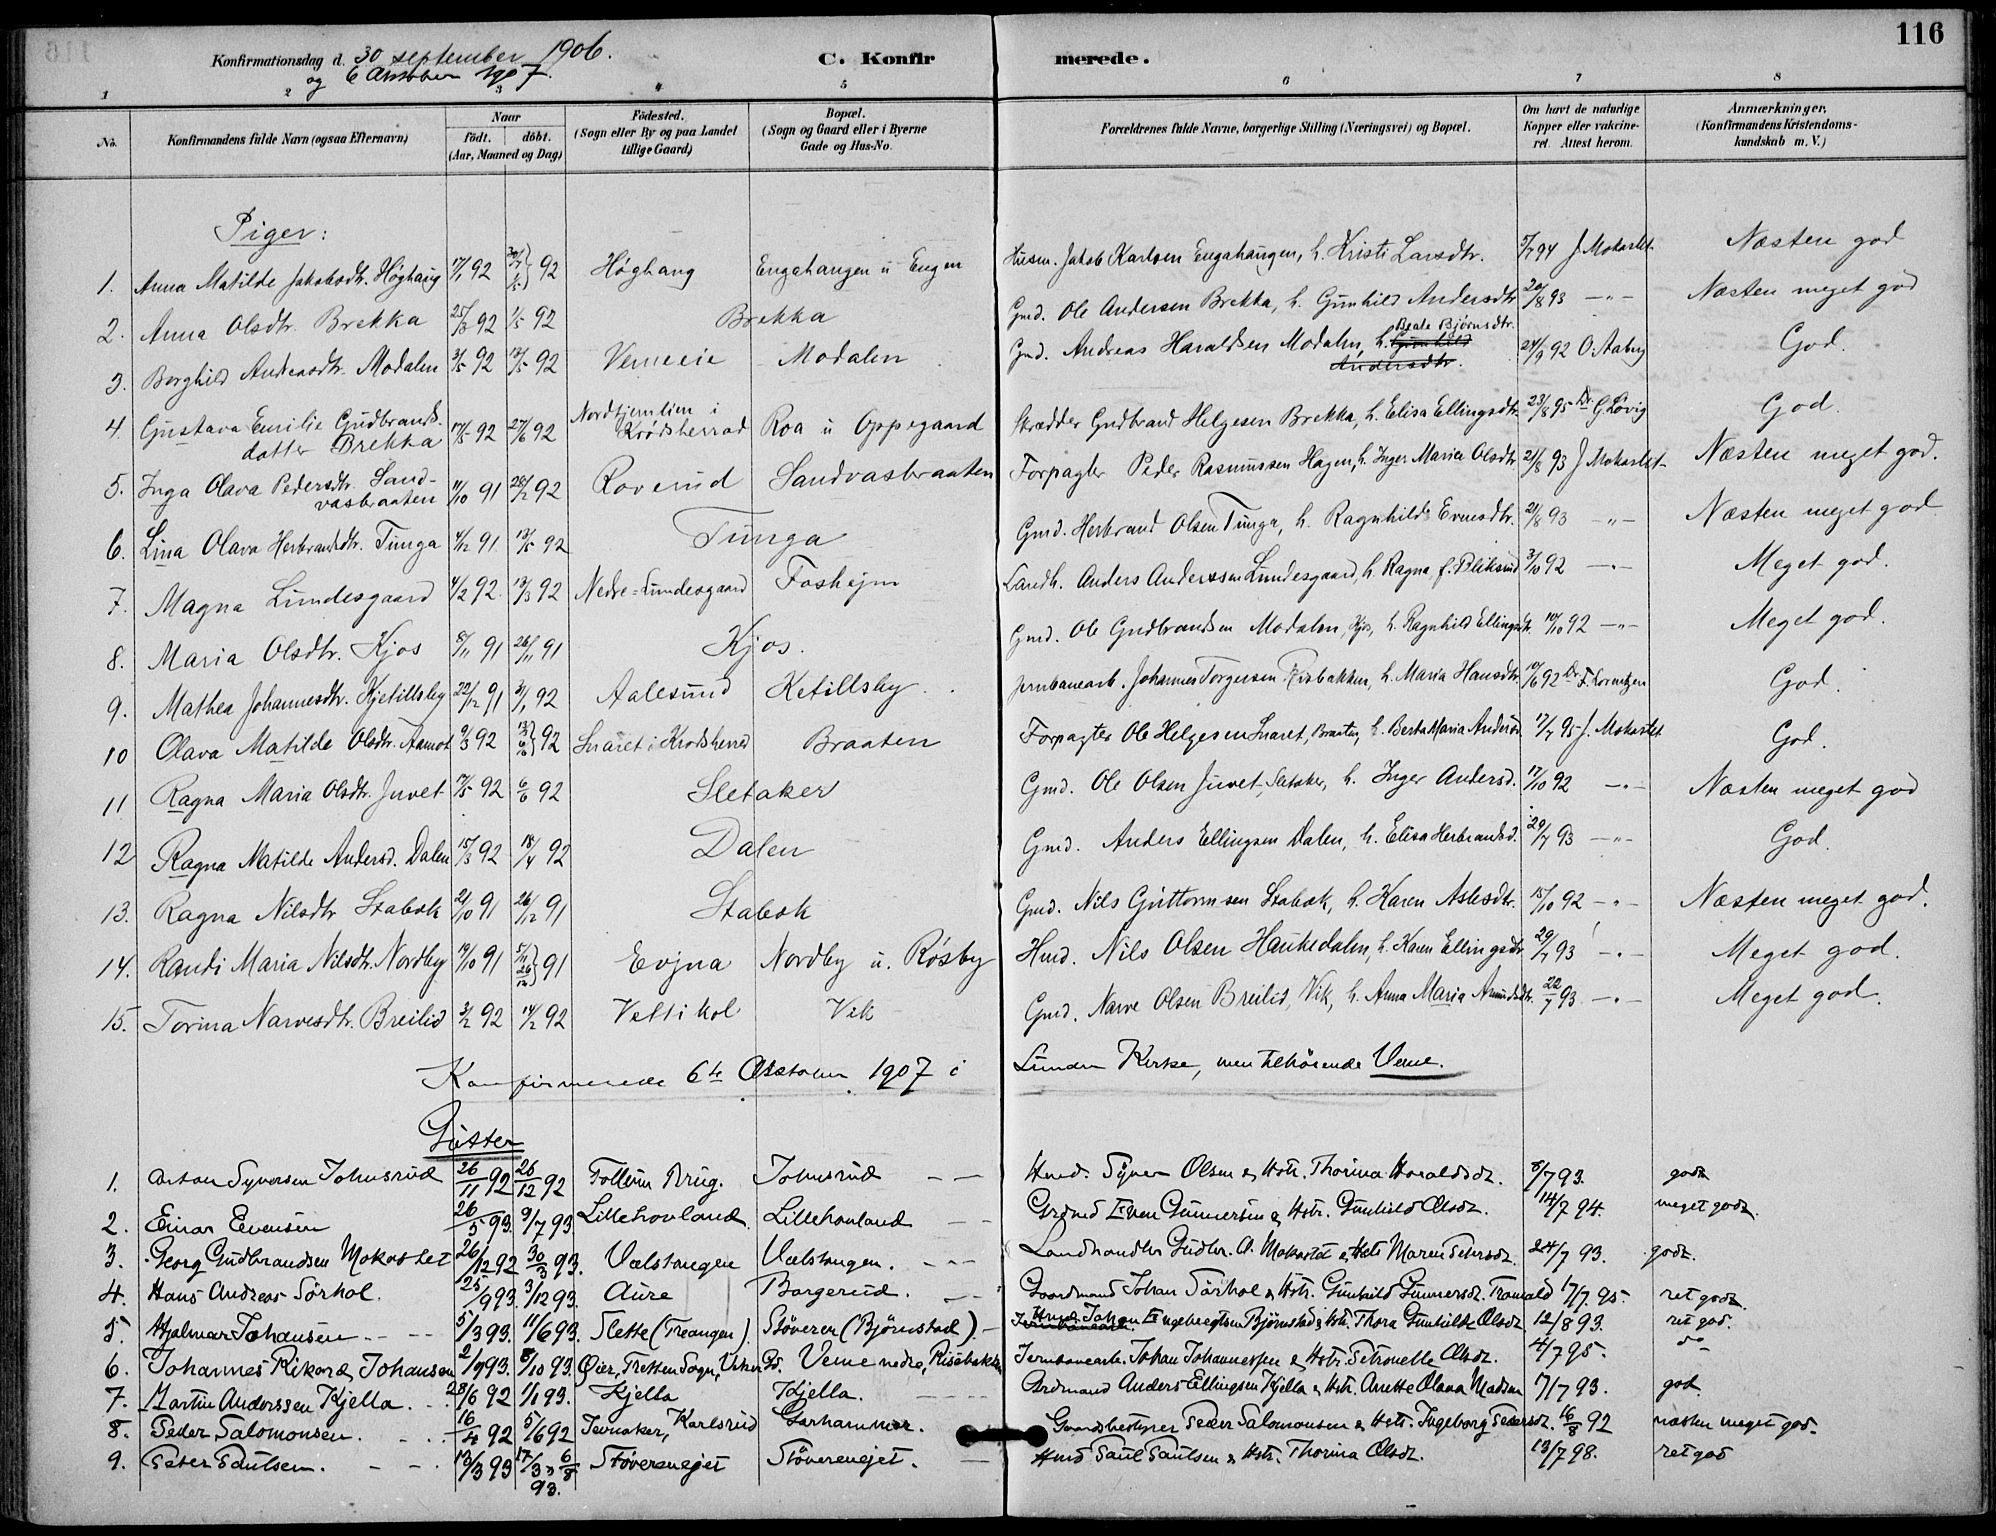 116
Konfirmationsdag d. 30 september 1906.
og 6 October 1907.
C. Konfir merede.
1 2 3 4 5 6 7 8
No. Konfirmandens fulde Navn (ogsaa Efternavn) Naar født. døbt. (Aar, Maaned og Dag) Fødested. (Sogn eller By og paa Landet tillige Gaard) Bopæl. (Sogn og Gaard eller i Byerne Gade og Hus-No. Forældrenes fulde Navne, borgerlige Stilling (Næringsvei) og Bopæl. Om havt de naturlige Kopper eller vakcineret. Attest herom. Anmærkninger. (Konfirmandens Kristendomskundskab m. V.)
Piger:
1. Anna Matilde Jakobsdtr. Høghaug 17/1 92 92 Høghaug Engahaugen u Engen Husm. Jakob Karlsen Engahaugen, h. Kristi Larsdtr. 5/7 94 J Mokastet Næsten god
2. Anna Olsdtr. Brekka 25/3 92 1/5 92 Brekka Gmd. Ole Andersen Brekka, h. Gunhild Andersdtr 20/8 93 -"- Næsten meget god
3. Borghild Andreasdtr. Modalen 3/5 92 92 Vemeeie Modalen Gmd. Andreas Haraldsen Modalen, h. Gunhild Andersdtr. Beate Bjørnsdtr. 24/9 92 O. Aaberg God.
4. Gustava Emilie Gudbrandsdatter Brekka 17/5 92 27/6 92 Nordtjernlien i Krødsherrad Roa u Oppegaard Skrædder Gudbrand Helgesen Brekka, h. Elisa Ellingsdtr. 23/8 95 Dr. G Løvig God.
5. Inga Olava Pedersdtr. Sandvasbraaten 11/10 91 28/2 92 Roverud Sandvasbraaten Forpagter Peder Rasmussen Hagen, h. Inger Marie Olsdtr. 21/8 93 J Mokastet Næsten meget god.
6. Lina Olava Herbrandsdtr. Tunga 4/12 91 13/5 92 Tunga Gmd. Herbrand Olsen Tunga, h. Ragnhild Evensdtr. 21/8 93 -"- Næsten meget god
7. Magna Lundesgaard 4/2 92 13/3 92 Nedre-Lundesgaard Foshejm Landh. Anders Anderssen Lundesgaard, h. Ragna f. Bliksrud 3/10 92 -"- Meget god.
8. Maria Olsdtr. Kjos 8/11 91 26/11 91 Kjos. Gmd. Ole Gudbrandsen Modalen, Kjos, h. Ragnhild Ellingsdtr. 10/10 92 -"- Meget god.
9. Mathea Johannesdtr. Kjetillsby 22/12 91 3/1 92 Aalesund Ketillsby Jernbanearb. Johannes Torgersen Risbakken, h. Maria Hansdtr. 10/6 92 Dr. F. Lorentzen God.
10 Olava Matilde Olsdtr. Aamot 9/3 92 92 Snaret i Krødsherred Braaten Forpagter Ole Helgesen Snaret, Braaten, h. Berta Maria Andersd. 17/7 95 J. Mokastet God.
11 Ragna Maria Olsdtr. Juvet 17/5 92 6/6 92 Sletaker Gmd. Ole Olsen Juvet, Sletaker, h. Inger Andersd. 17/10 92 -"- Næsten meget god
12 Ragna Matilde Andersd. Dalen 15/3 92 18/4 92 Dalen Gmd. Anders Ellingsen Dalen, h. Elisa Herbrandsd. 20/7 93 -"- God.
13. Ragna Nilsdtr Stabæk 21/10 91 26/12 91 Stabæk Gmd. Nils Guttormsen Stabæk, h. Karen Aslesdtr. 15/10 92 -"- Næsten meget god.
14. Randi Maria Nilsdtr. Nordby 19/10 91 5/11 26/12 91 Evjua Nordby u. Røsby Hmd. Nils Olsen Haukedalen, h. Karen Ellingsdtr 20/7 93 -"- Meget god.
15. Torina Narvesdtr. Breilid 3/2 92 14/2 92 Veltikol Vik Gmd. Narve Olsen Breilid, Vik, h. Anna Maria Amundsdtr. 22/7 93 -"- Meget god.
Konfirmerede 6te October 1907 i Lunder Kirke, men tilhørende Veme.
Gutter
1. Anton Syversen Johnsrud 26/11 92 26/12 92 Follum Brug. Johnsrud Hmd. Syver Olsen & Hstr. Thorina Haraldsdt. 8/7 93. godt
2. Einar Evensen 26/5 93. 9/7 93 Lillehovland Lillehovland Grdmd Even Gunnersen & Hstr. Gunhild Olsdt. 14/7 94. meget godt.
3. Georg Gudbrandsen Mokastet 26/12 92 30/3 93. Vælstangen Vælstangen. Landhandler Gudbr. A. Mokastet & Hstr Maren Petersdt. 24/7 93. godt.
4. Hans Andreas Sörhol. 25/9 93. 3/12 93. Aure Borgerud. Gaardmand Johan Sörhol & Hstr. Gunhild Gunnersdt. Tronrud 17/7 95. ret godt.
5. Hjalmar Johansen 5/3 93. 11/6 93. Slette (Treangen). Stöveren (Björnstad). Jernbanearb. Hmd Johan Engebregtsen Björnstad & Hstr. Thora Gunhilde Olsdt 12/8 93. ret god.
6. Johannes Rikard Johansen 2/7 93. 8/10 93. Öier, Tretten Sogn, Veme nedre, Risebakken Jernbanearb. Johan Johannessen & Hstr. Petronelle Olsdt. 4/7 95. do
7. Martin Anderssen Kjella. 28/6 92 1/1 93. Kjella Kjella. Grdmand Anders Ellingsen Kjella & Hstr. Anette Olava Madsen 17/7 93. god.
8. Peder Salomonsen. 16/4 92 5/6 92 Jevnaker, Karlsrud Garhammer. Gaardsbestyrer Peder Salomonsen & Hstr. Ingeborg Pedersdt. 16/8 92 næsten meget god.
9. Peter Paulsen. 13/3 93 17/3 & 6/8 93. Stöverenejet Stöverenejet. Hmd Paul Paulsen & Hstr. Thorina Olsdt. 13/7 98. ret god